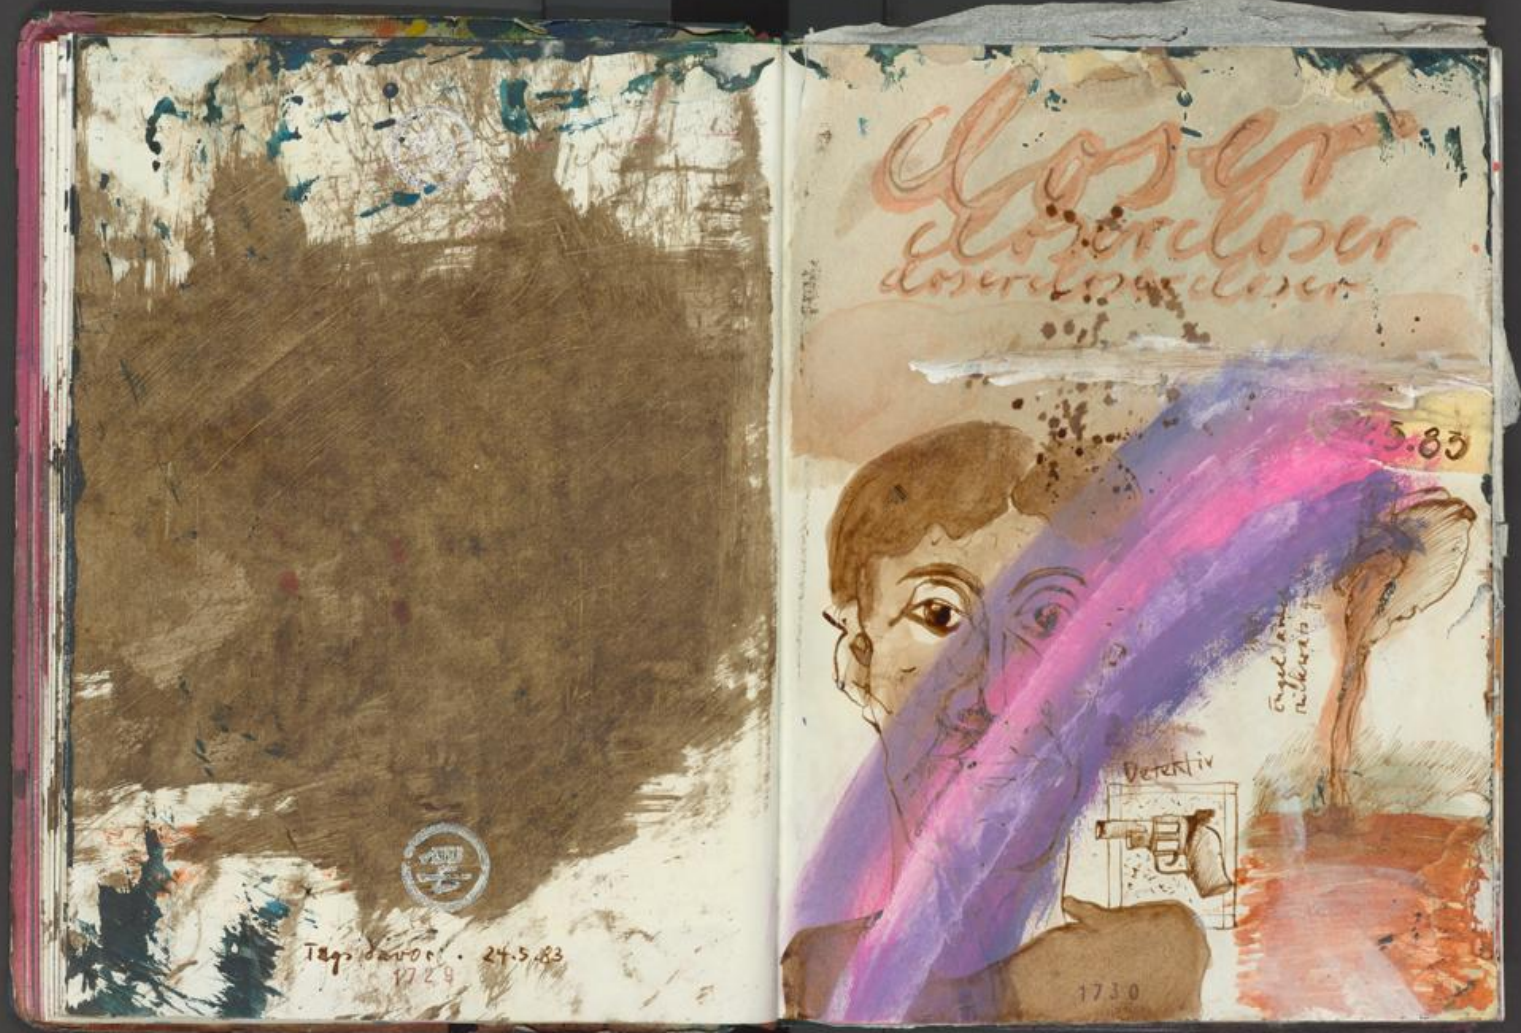 Tags davor . 24.5.83
1729
closer
closercloser
closerclosercloser
5.83
Detektiv
1730